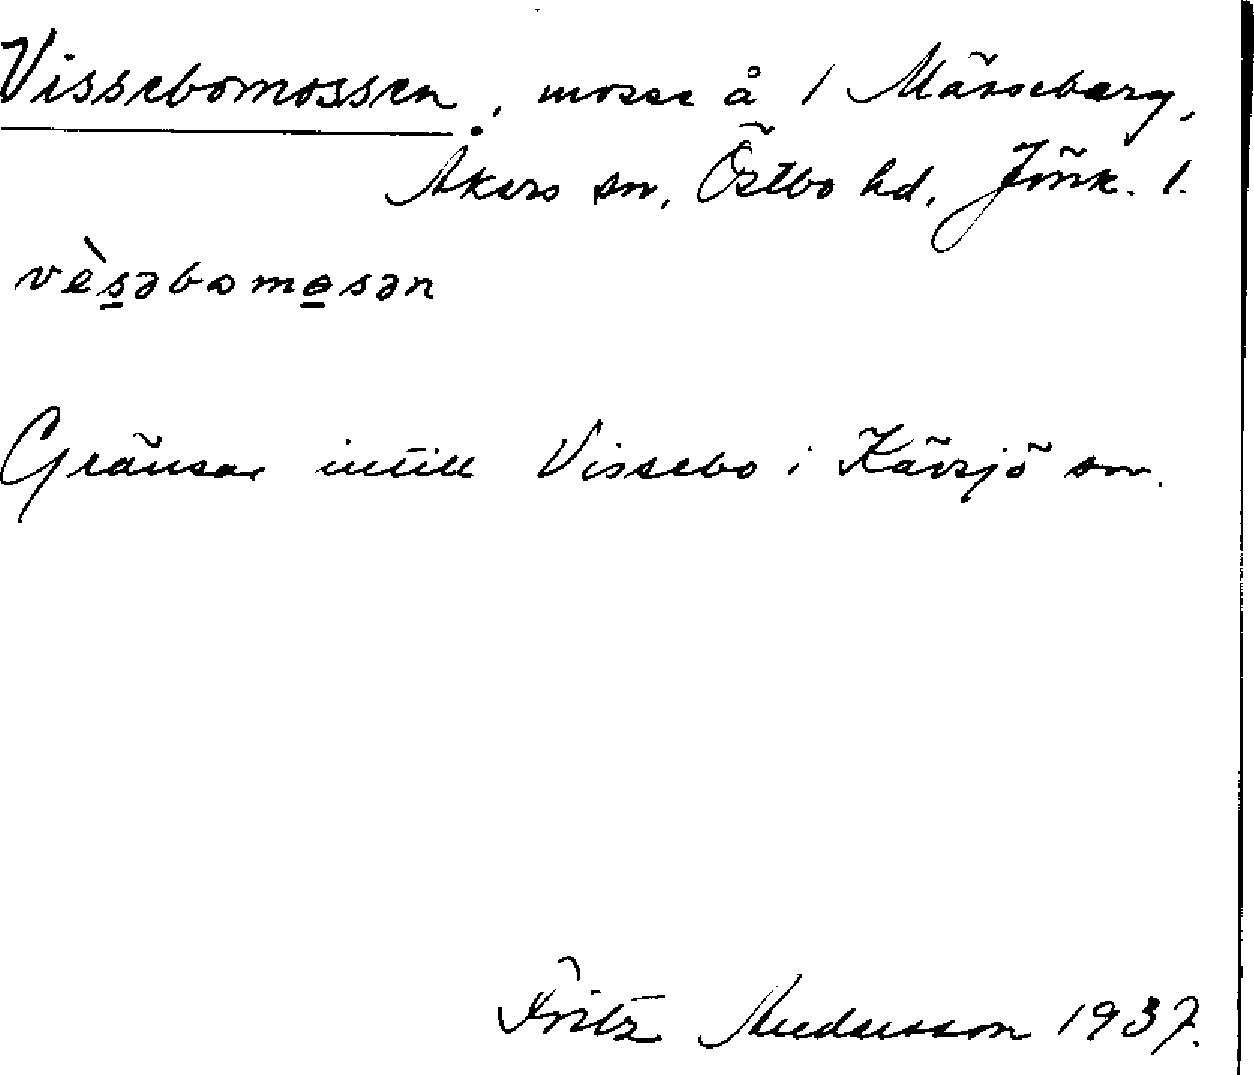 Vissebomossen, mosse å 1 Mässeberg,
Åkers sn, Östbo hd, Jönk. l.
vès̲əbomo̲sən
Gränsar intill Vissebo i Kävsjö sn.
Fritz Andersson 1937.